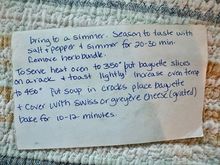 bring to a simmer. Season to taste with
salt & pepper & simmer for 20-30 min.
Remove herb bundle.
To Serve heat oven to 350° put baguette slices
on a rack & toast lightly! Increase oven temp
to 450° Put soup in crocks place baguette
& cover with Swiss or greyère cheese (grated)
bake for 10-12 minutes.